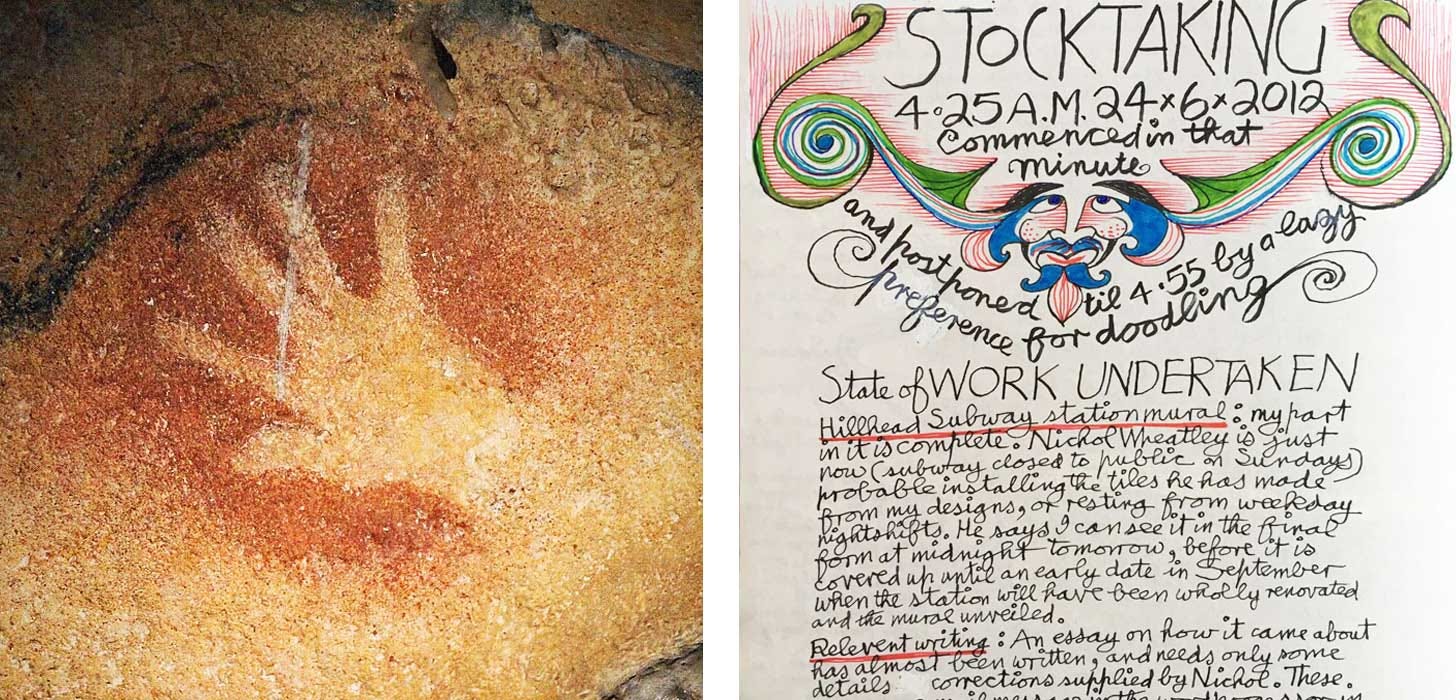 STOCKTAKING
4·25 A.M. 24×6×2012
Commenced in that
minute
and postponed til 4·55 by a lazy
preference for doodling
State of WORK UNDERTAKEN
Hillhead Subway station mural : my part
in it is complete. Nichol Wheatley is just
now (subway closed to public on Sundays)
probable installing the tiles he has made
from my designs, or resting from weekday
nightshifts. He says I can see it in the final
form at midnight tomorrow, before it is
covered up until an early date in September
when the station will have been wholly renovated
and the mural unveiled.
Relevent writing : An essay on how it came about
has almost been written, and needs only some
details corrections supplied by Nichol. These